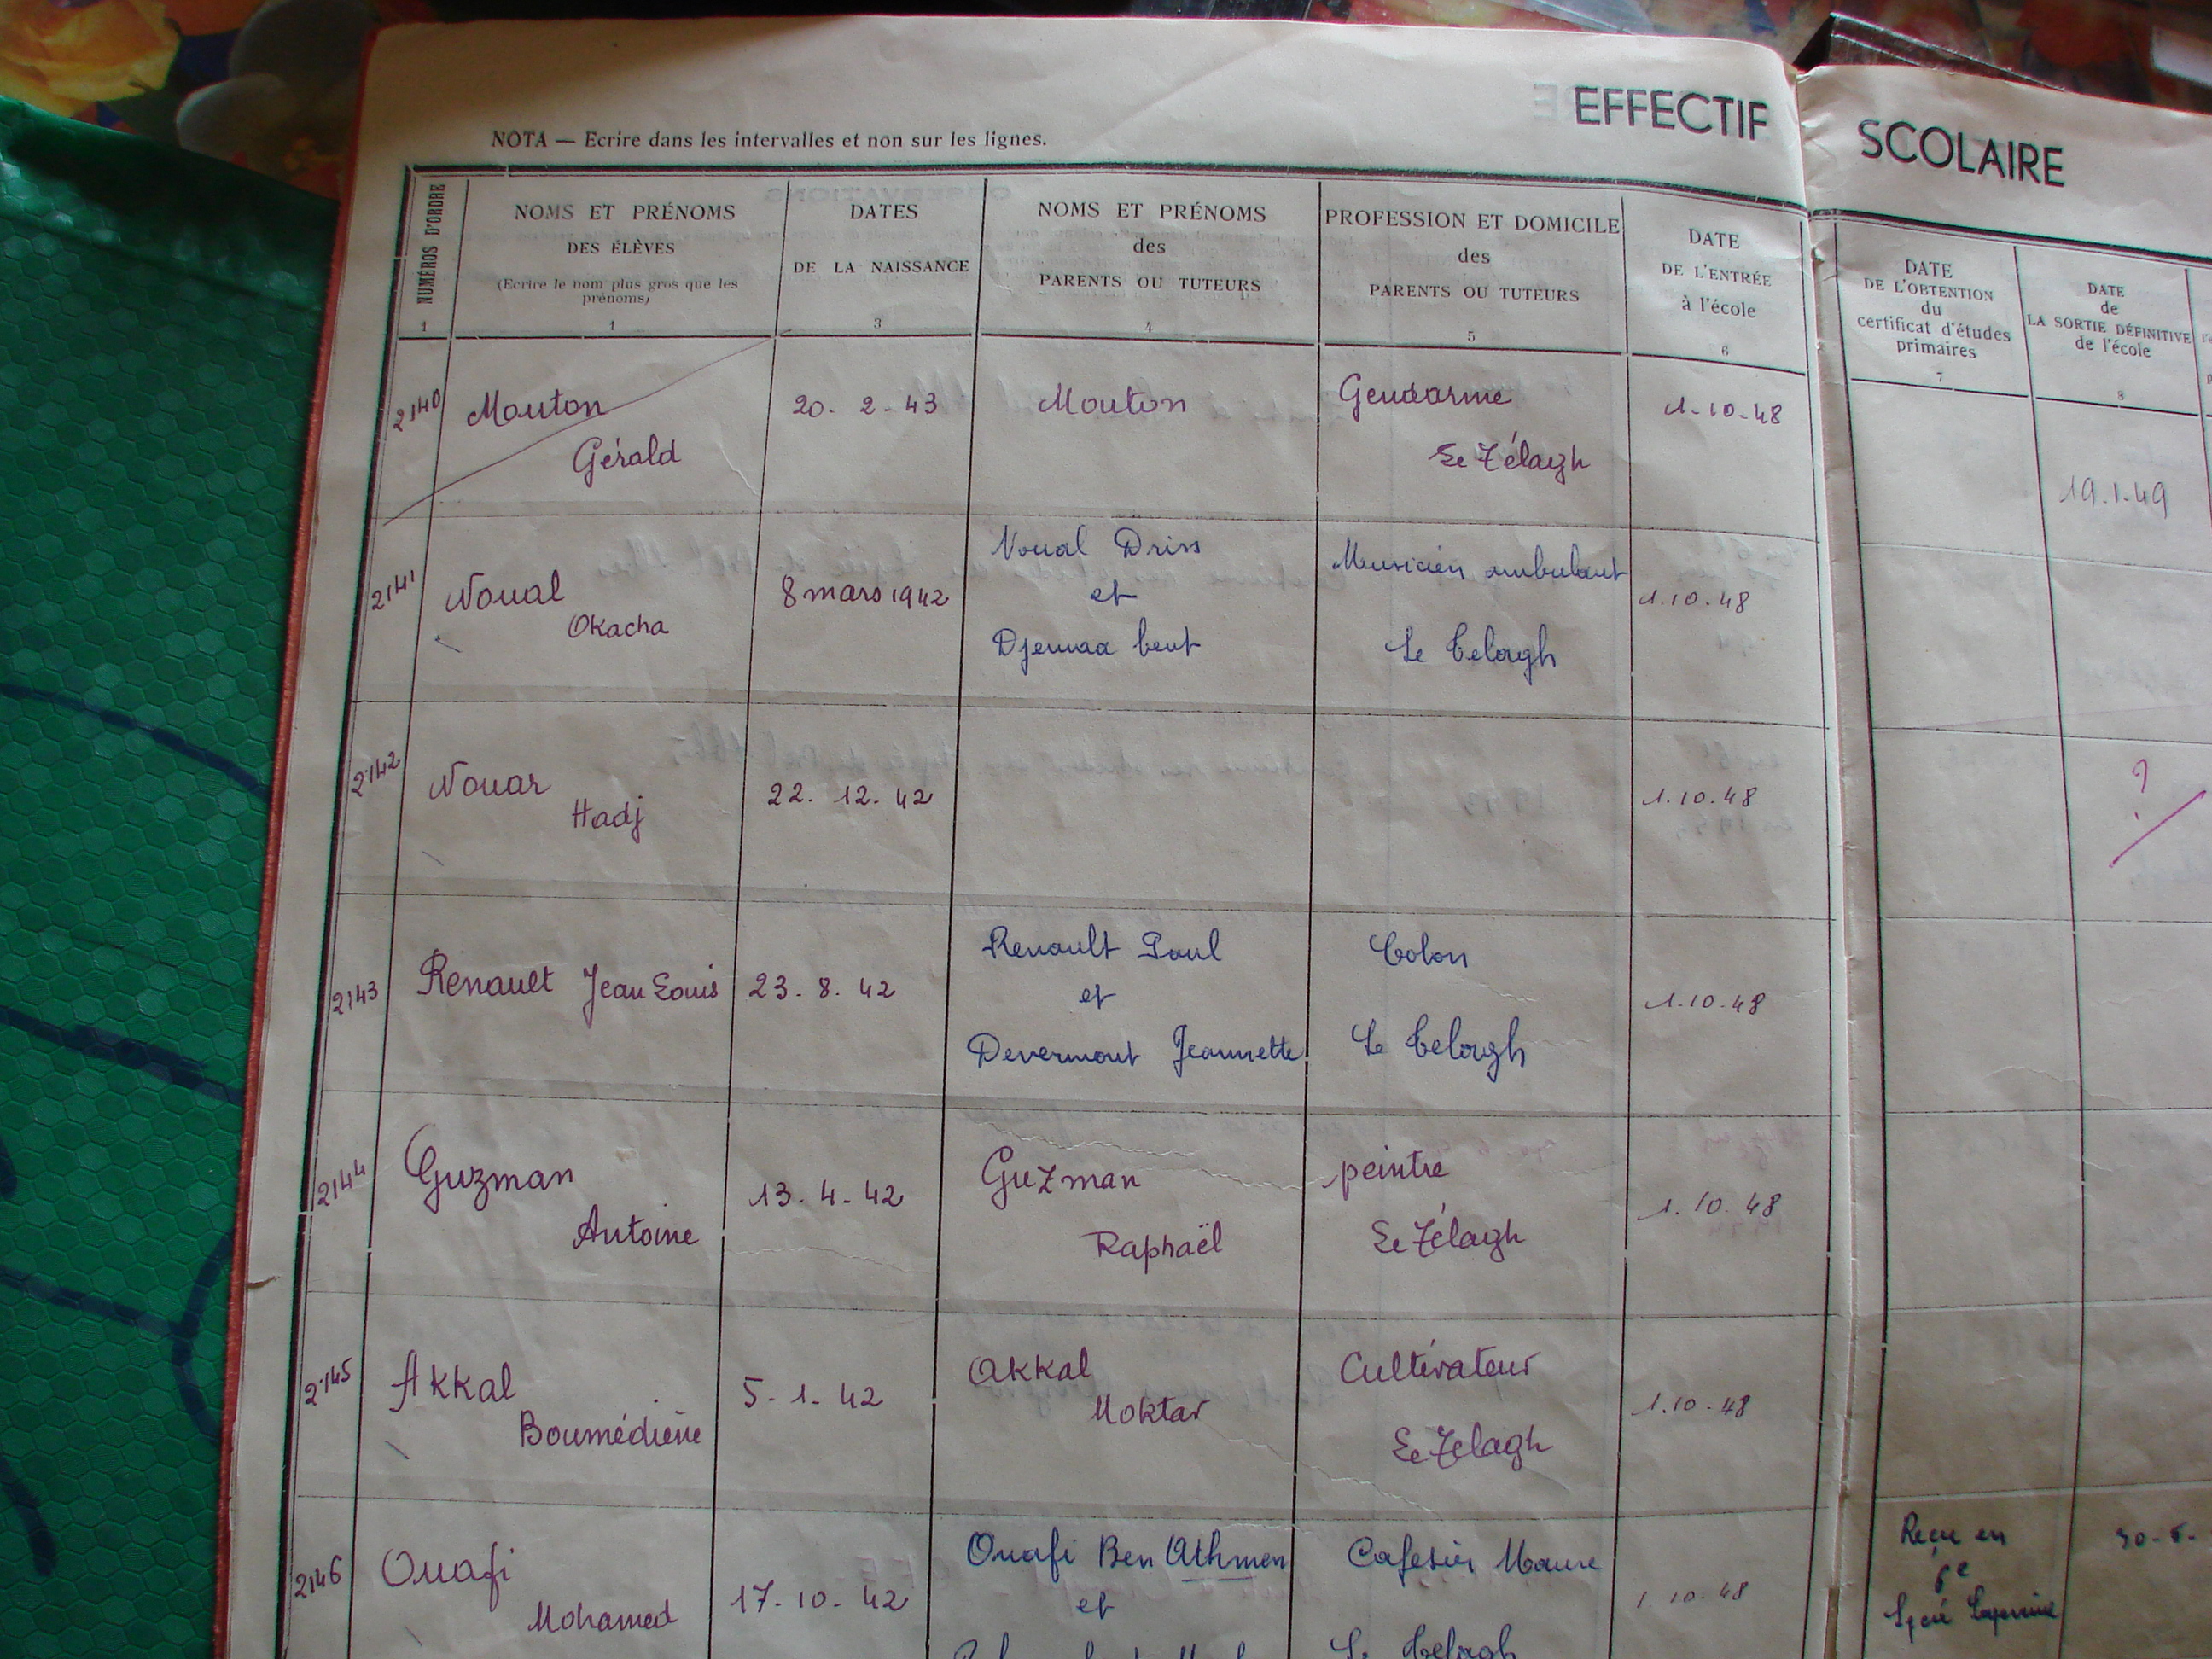 EFFECTIF
SCOLAIRE
NOTA — Ecrire dans les intervalles et non sur les lignes.
NUMÉROS D'ORDRE
1
NOMS ET PRÉNOMS
DES ÉLÈVES
(Ecrire le nom plus gros que les
prénoms)
1
DATES
DE LA NAISSANCE
3
NOMS ET PRÉNOMS
des
PARENTS OU TUTEURS
4
PROFESSION ET DOMICILE
des
PARENTS OU TUTEURS
5
DATE
DE L'ENTRÉE
à l'école
6
DATE
DE L'OBTENTION
du
certificat d'études
primaires
7
DATE
de
LA SORTIE DÉFINITIVE
de l'école
8
2140
Mouton
Gérald
20. 2. 43
Mouton
Gendarme
Le Télagh
1-10-48
19.1.49
2141
Noual
Okacha
8 mars 1942
Noual Driss
et
Djemaa bent
Musicien ambulant
Le Telagh
1.10.48
2142
Nouar
Hadj
22. 12. 42
1.10.48
?
2143
Renault Jean Louis
23. 8. 42
Renault Paul
et
Devermont Jeannette
Colon
Le Telagh
1.10.48
2144
Guzman
Antoine
13. 4. 42
Guzman
Raphaël
peintre
Le Télagh
1. 10. 48
2145
Akkal
Boumédiène
5. 1. 42
Akkal
Moktar
Cultivateur
Le Telagh
1.10.48
2146
Ouafi
Mohamed
17-10-42
Ouafi Ben Athmen
et
Cafetier Maure
Le Telagh
1 10.48
Reçu en
6e
Lycée